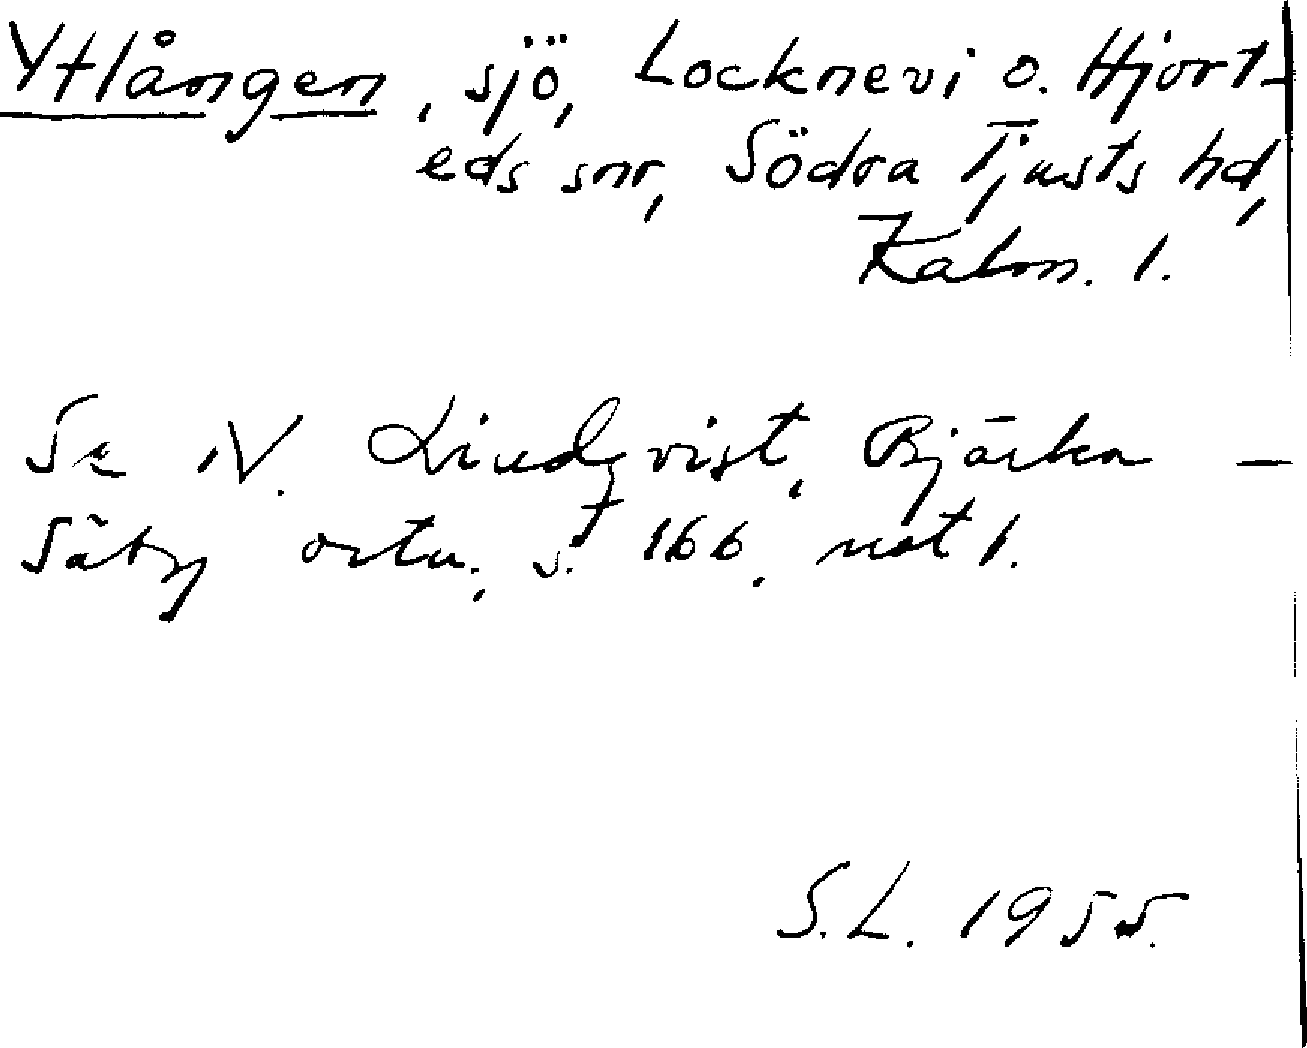 Ytlången, sjö, Locknevi o. Hjort-
eds snr, Södra Tjusts hd,
Kalm. l.
Se N. Lindqvist, Bjärka-
Säby ortn., s. 166, not 1.
S.L. 1955.